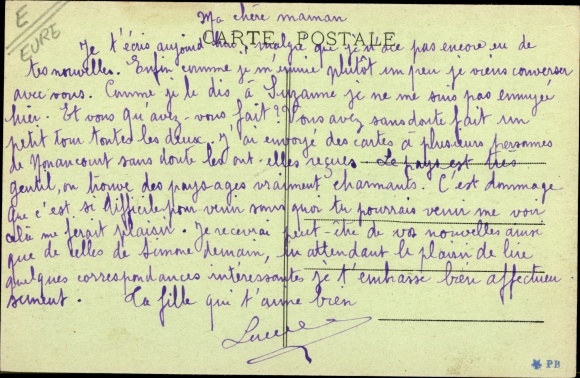 E
EURE
Ma chère maman
CARTE POSTALE
Je t'écris aujourd'hui, malgré que je n'ace pas encore eu de
tes nouvelles. Enfin comme je m'ennuie plutôt un peu je viens converser
avec vous. Comme je le dis à Suzanne je ne me suis pas ennuyée
hier. Et vous qu'avez-vous fait?? Vous avez sans doute fait un
petit tour toutes les deux. J'ai envoyé des cartes à plusieurs personnes
de Nonancourt sans doute les ont-elles reçues. Le pays est très
gentil, on trouve des pays-ages vraiment charmants. C'est dommage
que c'est si difficile pour venir sans quoi tu pourrais venir me voir
cela me ferait plaisir. Je recevrai peut-être de vos nouvelles ainsi
que de celles de Simone demain, en attendant le plaisir de lire
quelques correspondances intéressantes je t'embrasse bien affectueu
sement. Ta fille qui t'aime bien
PB